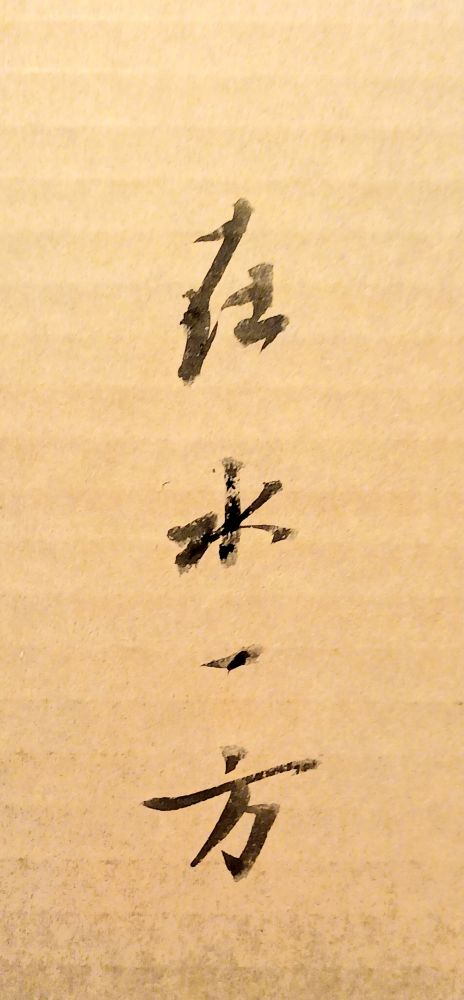 在水一方